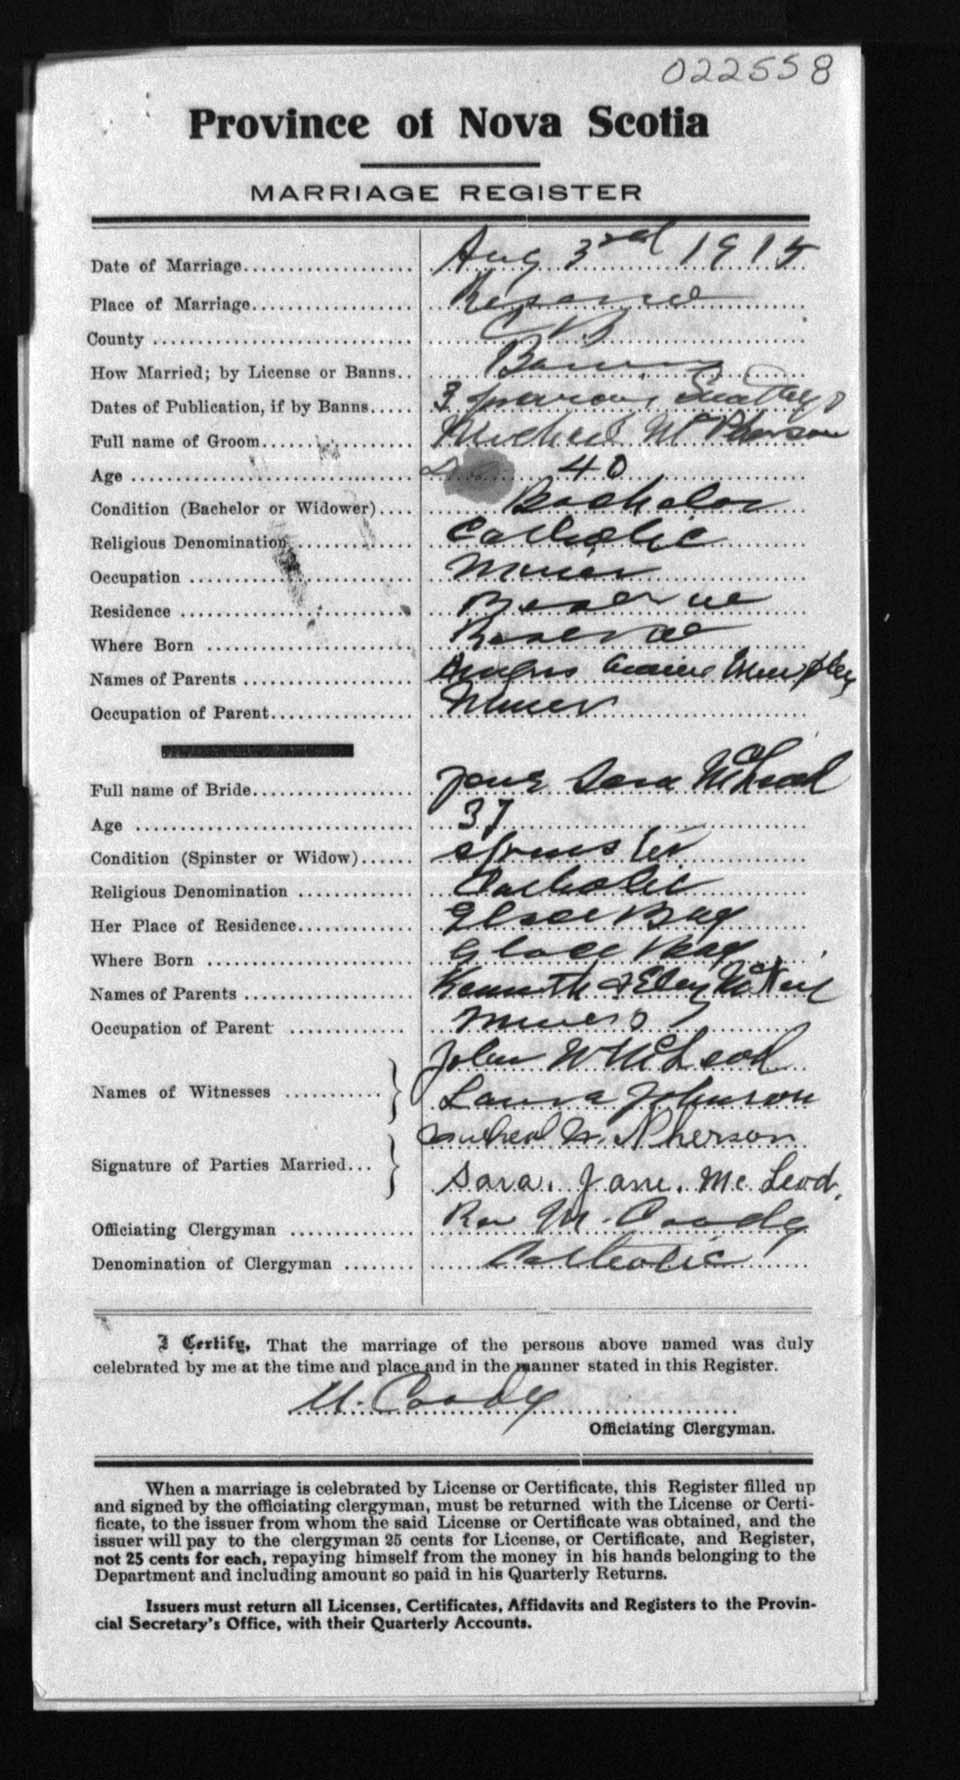 022558
Province of Nova Scotia
MARRIAGE REGISTER
Date of Marriage Aug 3rd 1915
Place of Marriage Reserve
County CB
How Married; by License or Banns.. Banns
Dates of Publication, if by Banns 3 previous Sundays
Full name of Groom Micheal McPherson
Age 40
Condition (Bachelor or Widower) Bachelor
Religious Denomination Catholic
Occupation Miner
Residence Reserve
Where Born Reserve
Names of Parents Angus Annie Murphy
Occupation of Parent Miner
Full name of Bride Jane Sara McLeod
Age 37
Condition (Spinster or Widow) Spinster
Religious Denomination Catholic
Her Place of Residence Glace Bay
Where Born Glace Bay
Names of Parents Kenneth & McNeil
Occupation of Parent Miner
John W McLeod
Names of Witnesses
Laura Johnson
Micheal Mc Pherson
Signature of Parties Married...
Sara. Jane. Mc Leod.
Officiating Clergyman Rev M. Coady
Denomination of Clergyman Catholic
I Certify, That the marriage of the persons above named was duly
celebrated by me at the time and place and in the manner stated in this Register.
M. Coady
Officiating Clergyman.
When a marriage is celebrated by License or Certificate, this Register filled up
and signed by the officiating clergyman, must be returned with the License or Certi-
ficate, to the issuer from whom the said License or Certificate was obtained, and the
issuer will pay to the clergyman 25 cents for License, or Certificate, and Register,
not 25 cents for each, repaying himself from the money in his hands belonging to the
Department and including amount so paid in his Quarterly Returns.
Issuers must return all Licenses, Certificates, Affidavits and Registers to the Provin-
cial Secretary's Office, with their Quarterly Accounts.